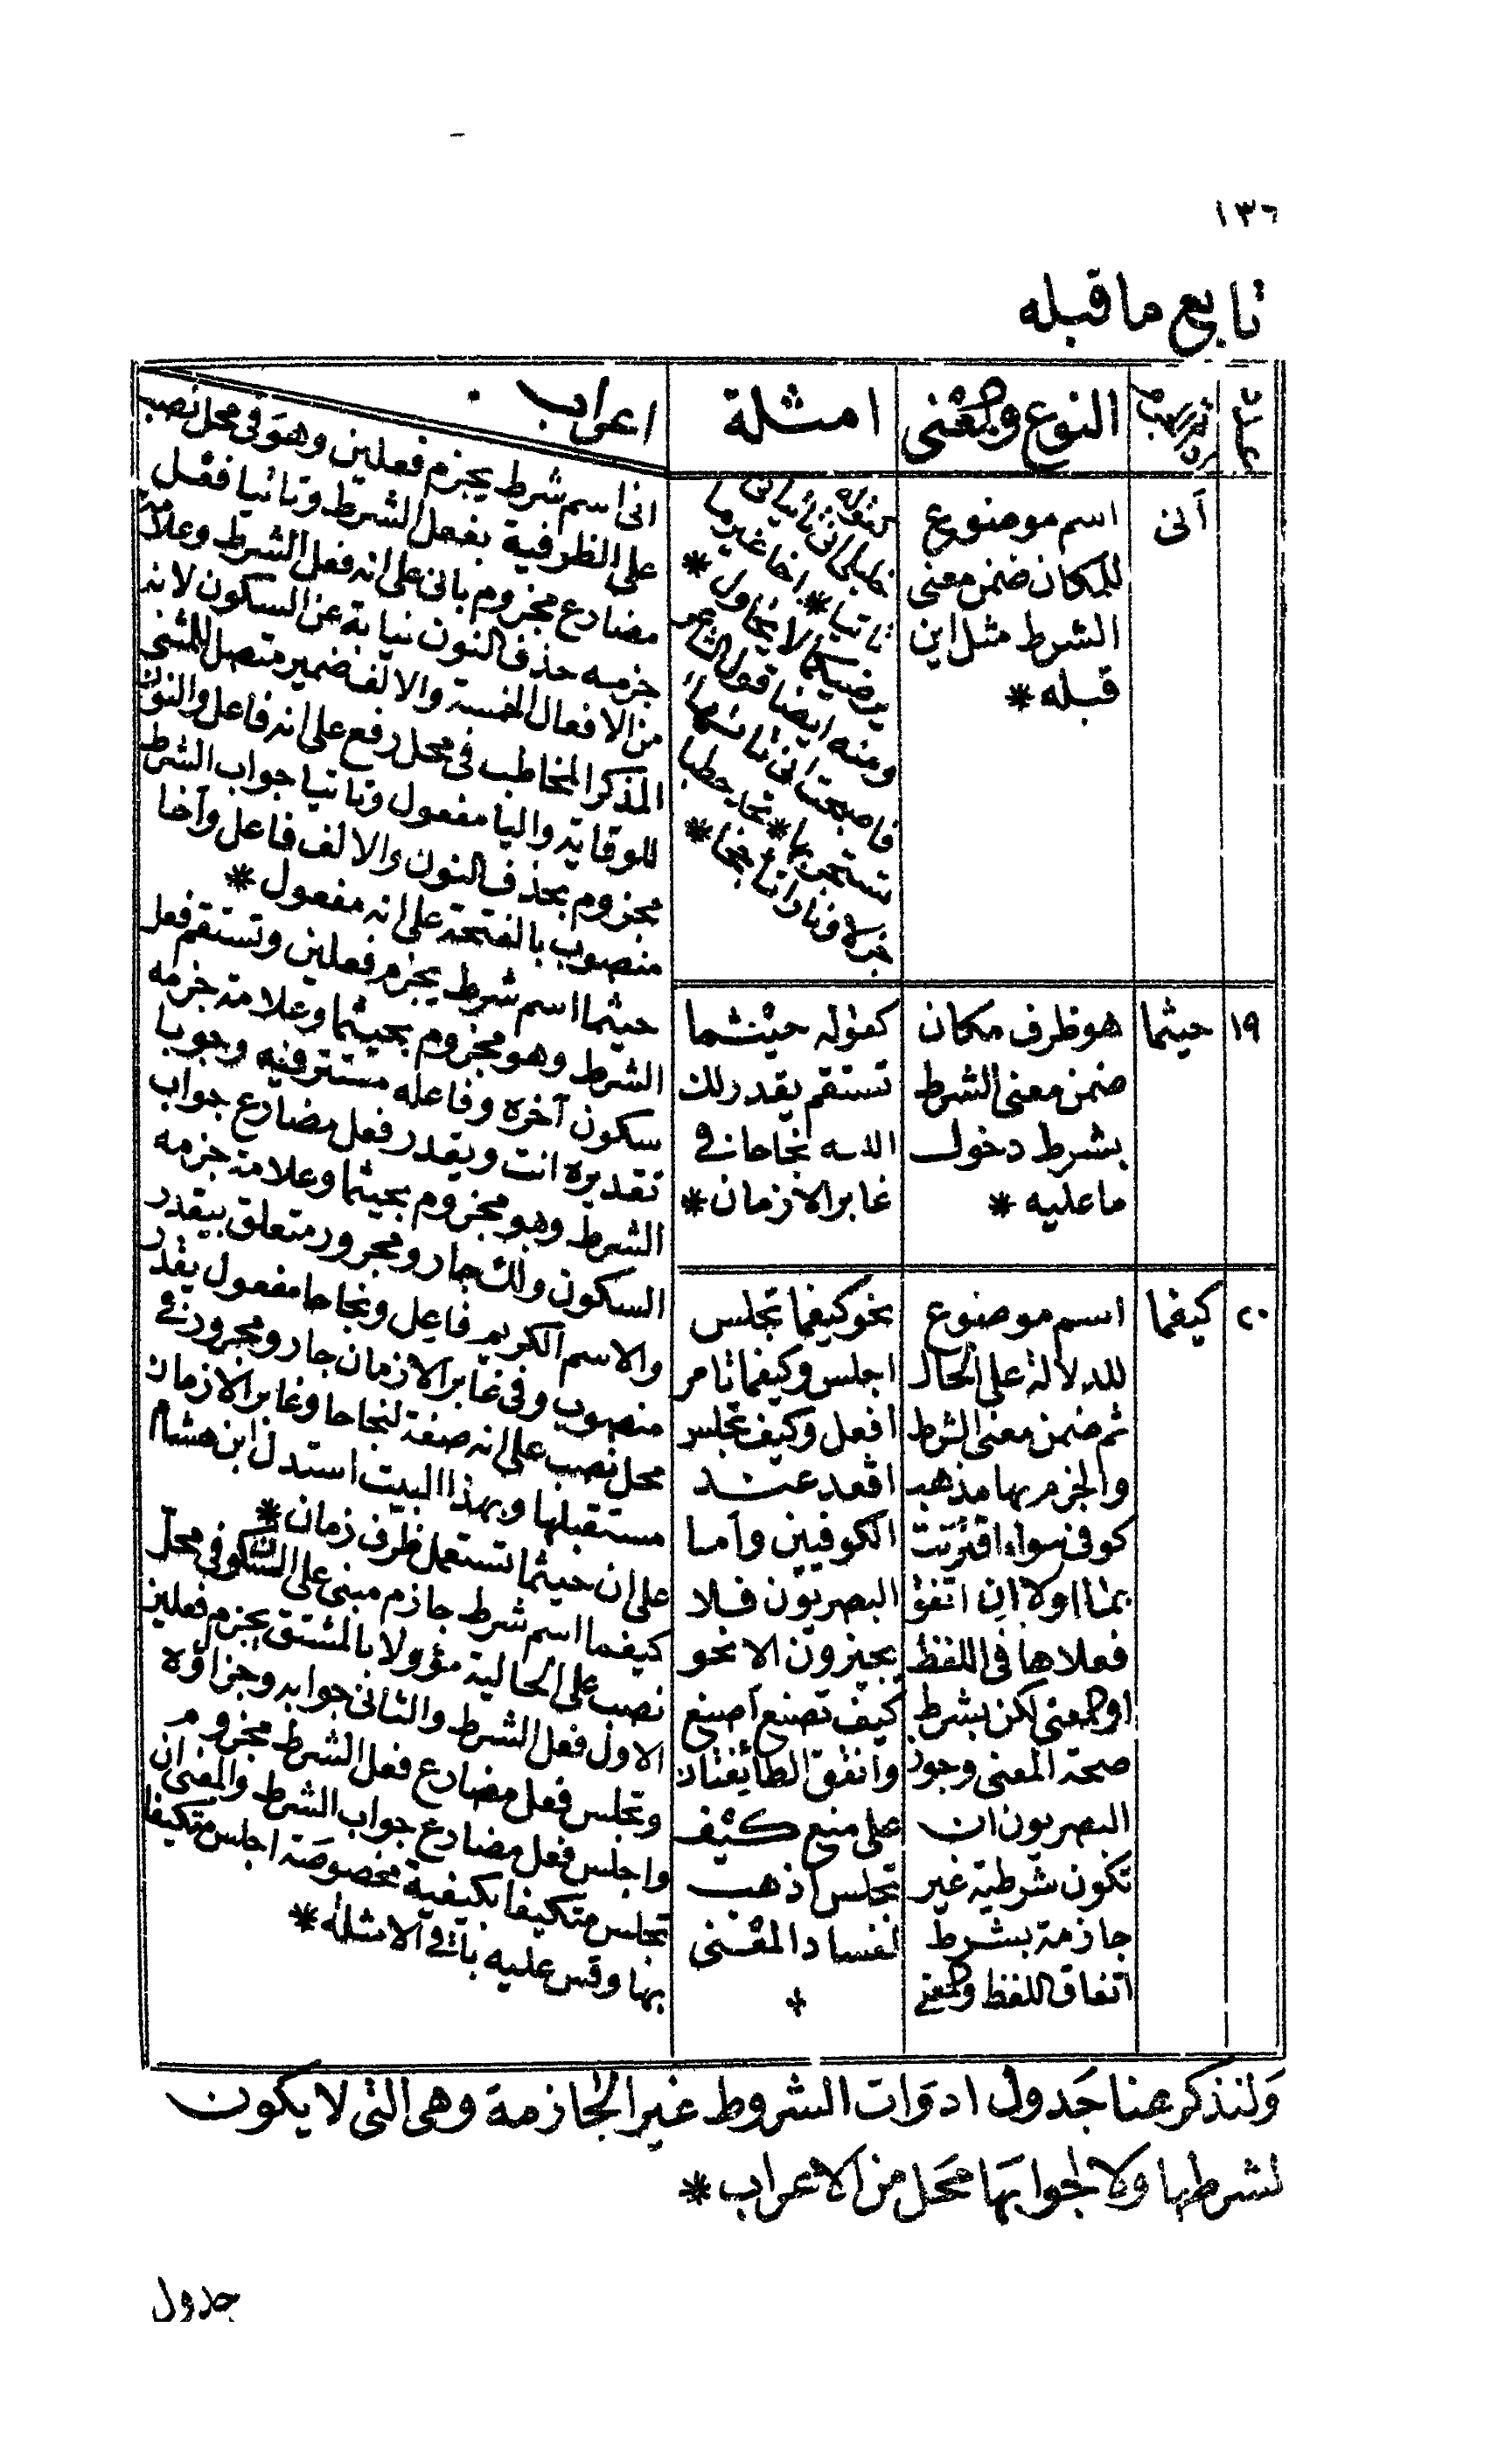 ١٣٦
تابع ما قبله
عدد
النوع والمعنى
امثلة
اعراب
أنى
اسم موضوع
للمكان ضمن معنى
الشرط مثل اين
قبله *
كقوله
خليلي انى تاتياني
تاتيا * اخا غير ما
يرضيكما لا يحاول *
ومنه ايضا قول الشاعر
فاصبحت انى تاتها
تستجر بها * تجد حطبا
جزلا ونارا تاججا *
انى اسم شرط يجزم فعلين وهو في محل نصب
على الظرفية بفعل الشرط وتاتيا فعل
مضارع مجزوم بانى على انه فعل الشرط وعلامة
جزمه حذف النون نيابة عن السكون لانه
من الافعال الخمسة والالف ضمير متصل للمثنى
المذكر المخاطب في محل رفع على انه فاعل والنون
للوقاية واليا مفعول وتاتيا جواب الشرط
مجزوم بحذف النون والالف فاعل وآخا
منصوب بالفتحة على انه مفعول *
١٩
حيثما
هو ظرف مكان
ضمن معنى الشرط
بشرط دخول
ما عليه *
كقوله حيثما
تستقم يقدر لك
الله نجاحا في
غابر الازمان *
حيثما اسم شرط يجزم فعلين وتستقم فعل
الشرط وهو مجزوم بحيثما وعلامة جزمه
سكون آخره وفاعله مستتر فيه وجوبا
تقديره انت ويقدر فعل مضارع جواب
الشرط وهو مجزوم بحيثما وعلامة جزمه
السكون ولك جار ومجرور متعلق بيقدر
والاسم الكريم فاعل ونجاحا مفعول يقدر
منصوب وفي غابر الازمان جار ومجرور في
محل نصب على انه صفة لنجاحا وغابر الازمان
مستقبلها وبهذا البيت استدل ابن هشام
على ان حيثما تستعمل ظرف زمان *
٢٠
كيفما
اسم موضوع
للدلالة على الحال
ثم ضمن معنى الشرط
والجزم بها مذهب
كوفى سواء اقترنت
بما اولا ان اتفق
فعلاها في اللفظ
والمعنى لكن بشرط
صحة المعنى وجوز
البصريون ان
تكون شرطية غير
جازمة بشرط
اتفاق اللفظ والمعنى
نحو كيفما تجلس
اجلس وكيفما تامر
افعل وكيف تجلس
اقعد عند
الكوفيين وأما
البصريون فلا
يجيزون الا نحو
كيف تصنع أصنع
واتفق الطائفتان
على منع كيف
تجلس اذهب
لفساد المعنى
كيفما اسم شرط جازم مبنى على السكون في محل
نصب على الحالية مؤولا بالمشتق يجزم فعلين
الاول فعل الشرط والثانى جوابه وجزاؤه
وتجلس فعل مضارع فعل الشرط مجزوم
واجلس فعل مضارع جواب الشرط والمعنى ان
تجلس متكيفا بكيفية مخصوصة اجلس متكيفا
بها وقس عليه باقي الامثلة *
وَلنذكر هنا جَدول ادوَات الشروط غير الجازمة وهى التى لا يكون
لشرطها ولا لجوابهَا محَل من الاعراب *
جدول